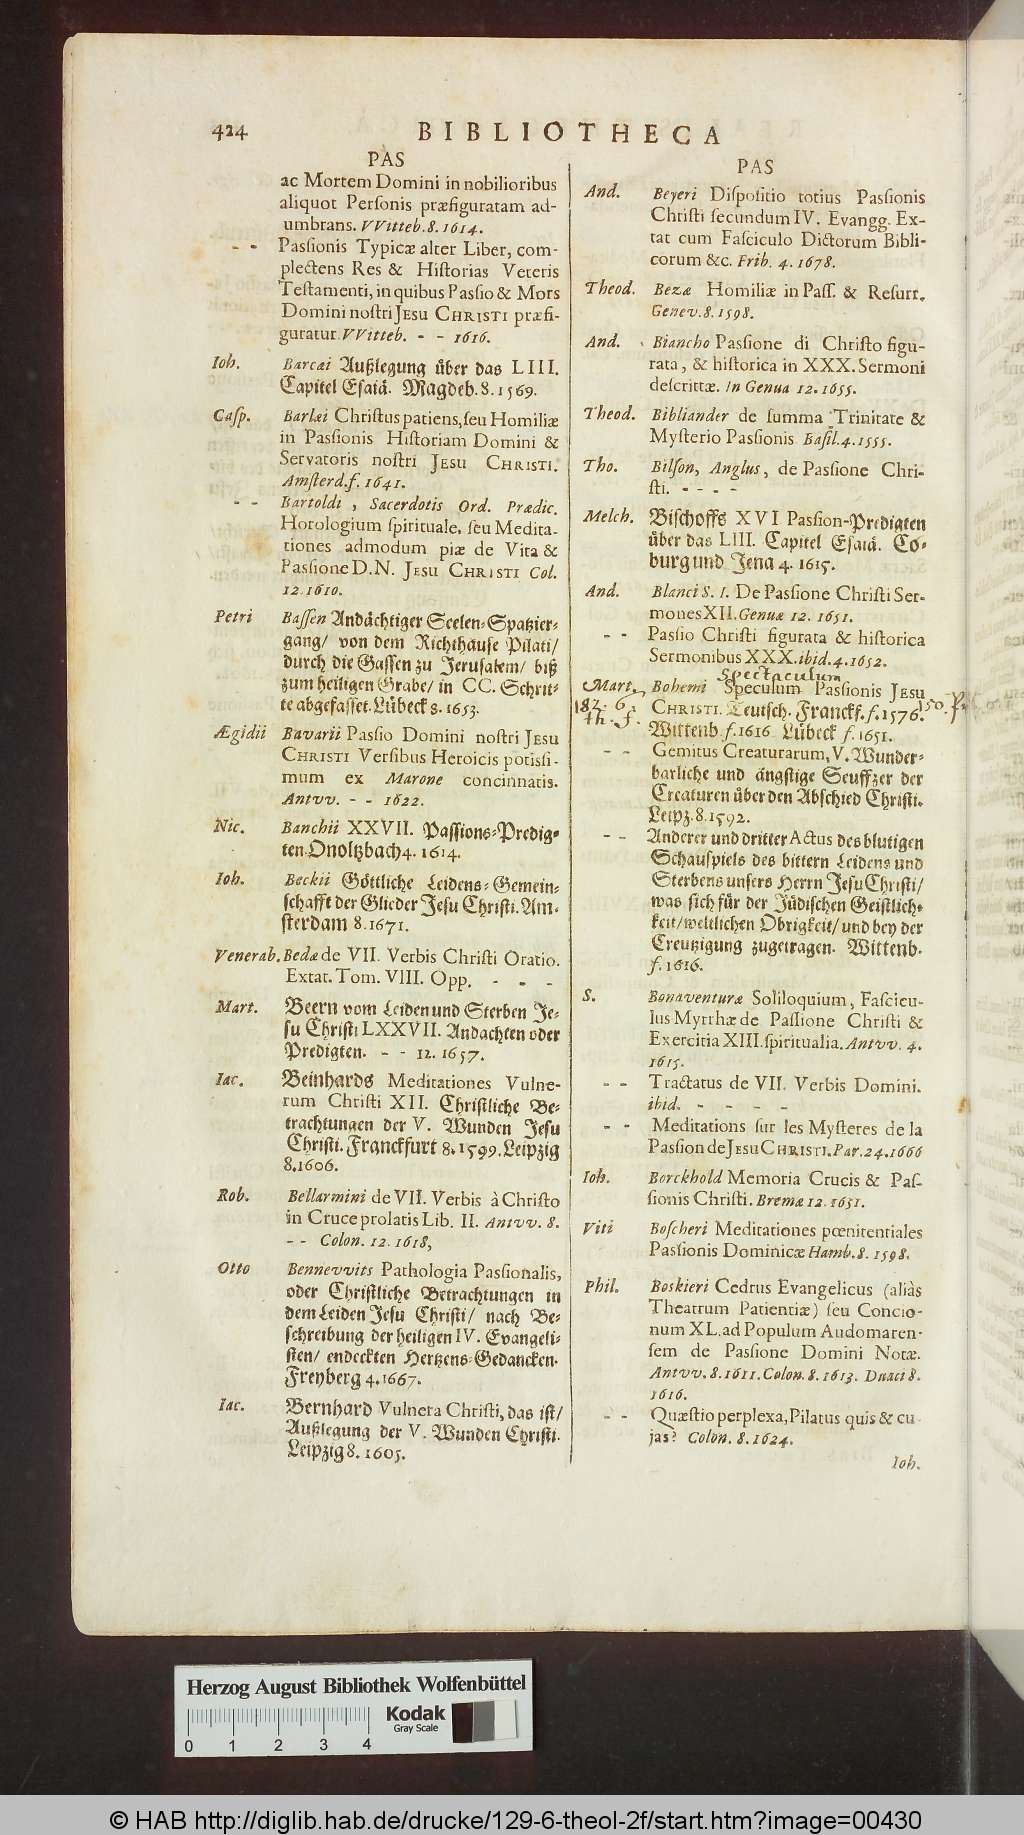 424 BIBLIOTHECA
PAS
ac Mortem Domini in nobilioribus
aliquot Personis præfiguratam ad-
umbrans. VVitteb. 8. 1614.
- - Passionis Typicæ alter Liber, com-
plectens Res & Historias Veteris
Testamenti, in quibus Passio & Mors
Domini nostri JESU CHRISTI præfi-
guratur. VVitteb. - - 1616.
Ioh. Barcæi Außlegung über das LIII.
Capitel Esaiä. Magdeb. 8. 1569.
Casp. Barlæi Christus patiens, seu Homiliæ
in Passionis Historiam Domini &
Servatoris nostri JESU CHRISTI.
Amsterd. f. 1641.
- - Bartoldi, Sacerdotis Ord. Prædic.
Horologium spirituale, seu Medita-
tiones admodum piæ de Vita &
Passione D.N. JESU CHRISTI Col.
12. 1610.
Petri Bassen Andächtiger Seelen-Spatzier-
gang/ von dem Richthause Pilati/
durch die Gassen zu Jerusalem/ biß
zum heiligen Grabe/ in CC. Schrit-
te abgefasset. Lübeck 8. 1653.
Ægidii Bavarii Passio Domini nostri JESU
CHRISTI Versibus Heroicis potissi-
mum ex Marone concinnatis.
Antvv. - - 1622.
Nic. Banchii XXVII. Passions-Predig-
ten. Onoltzbach 4. 1614.
Ioh. Beckii Göttliche Leidens-Gemein-
schafft der Glieder Jesu Christi. Am-
sterdam 8. 1671.
Venerab. Bedæ de VII. Verbis Christi Oratio.
Extat. Tom. VIII. Opp. - - -
Mart. Beern vom Leiden und Sterben Je-
su Christi LXXVII. Andachten oder
Predigten. - - 12. 1657.
Iac. Beinhards Meditationes Vulne-
rum Christi XII. Christliche Be-
trachtungen der V. Wunden Jesu
Christi. Franckfurt 8. 1599. Leipzig
8. 1606.
Rob. Bellarmini de VII. Verbis à Christo
in Cruce prolatis Lib. II. Antvv. 8.
- - Colon. 12. 1618,
Otto Bennevvits Pathologia Passionalis,
oder Christliche Betrachtungen in
dem Leiden Jesu Christi/ nach Be-
schreibung der heiligen IV. Evangeli-
sten/ endeckten Hertzens-Gedancken.
Freyberg 4. 1667.
Iac. Bernhard Vulnera Christi, das ist/
Außlegung der V. Wunden Christi.
Leipzig 8. 1605.
PAS
And. Beyeri Dispositio totius Passionis
Christi secundum IV. Evangg. Ex-
tat cum Fasciculo Dictorum Bibli-
corum &c. Frib. 4. 1678.
Theod. Bezæ Homiliæ in Pass. & Resurr.
Genev. 8. 1598.
And. Biancho Passione di Christo figu-
rata, & historica in XXX. Sermoni
descrittæ. In Genua 12. 1655.
Theod. Bibliander de summa Trinitate &
Mysterio Passionis Basil. 4. 1555.
Tho. Bilson, Anglus, de Passione Chri-
sti. - - - -
Melch. Bischoffs XVI Passion-Predigten
über das LIII. Capitel Esaiä. Co-
burg und Jena 4. 1615.
And. Blanci S. I. De Passione Christi Ser-
mones XII. Genuæ 12. 1651.
- - Passio Christi figurata & historica
Sermonibus XXX. ibid. 4. 1652.
Spectaculum
Mart. Bohemi Speculum Passionis JESU
182. 6. CHRISTI. Teutsch. Franckf. f. 1576. 150. P.
Th. f. Wittenb. f. 1616. Lübeck f. 1651.
- - Gemitus Creaturarum, V. Wunder-
barliche und ängstige Seuffzer der
Creaturen über den Abschied Christi.
Leipz. 8. 1592.
- - Anderer und dritter Actus des blutigen
Schauspiels des bittern Leidens und
Sterbens unsers Herrn Jesu Christi/
was sich für der Jüdischen Geistlich-
keit/ weltlichen Obrigkeit/ und bey der
Creutzigung zugetragen. Wittenb.
f. 1616.
S. Bonaventuræ Soliloquium, Fascicu-
lus Myrrhæ de Passione Christi &
Exercitia XIII. spiritualia. Antvv. 4.
1615.
- - Tractatus de VII. Verbis Domini.
ibid. - - - -
- - Meditations sur les Mysteres de la
Passion de JESU CHRISTI. Par. 24. 1666
Ioh. Borckhold Memoria Crucis & Pas-
sionis Christi. Bremæ 12. 1651.
Viti Boscheri Meditationes pœnitentiales
Passionis Dominicæ Hamb. 8. 1598.
Phil. Boskieri Cedrus Evangelicus (aliàs
Theatrum Patientiæ) seu Concio-
num XL. ad Populum Audomaren-
sem de Passione Domini Notæ.
Antvv. 8. 1611. Colon. 8. 1613. Duaci 8.
1616.
- - Quæstio perplexa, Pilatus quis & cu-
jas? Colon. 8. 1624.
Ioh.
Herzog August Bibliothek Wolfenbüttel
Kodak
Gray Scale
0 1 2 3 4
© HAB http://diglib.hab.de/drucke/129-6-theol-2f/start.htm?image=00430